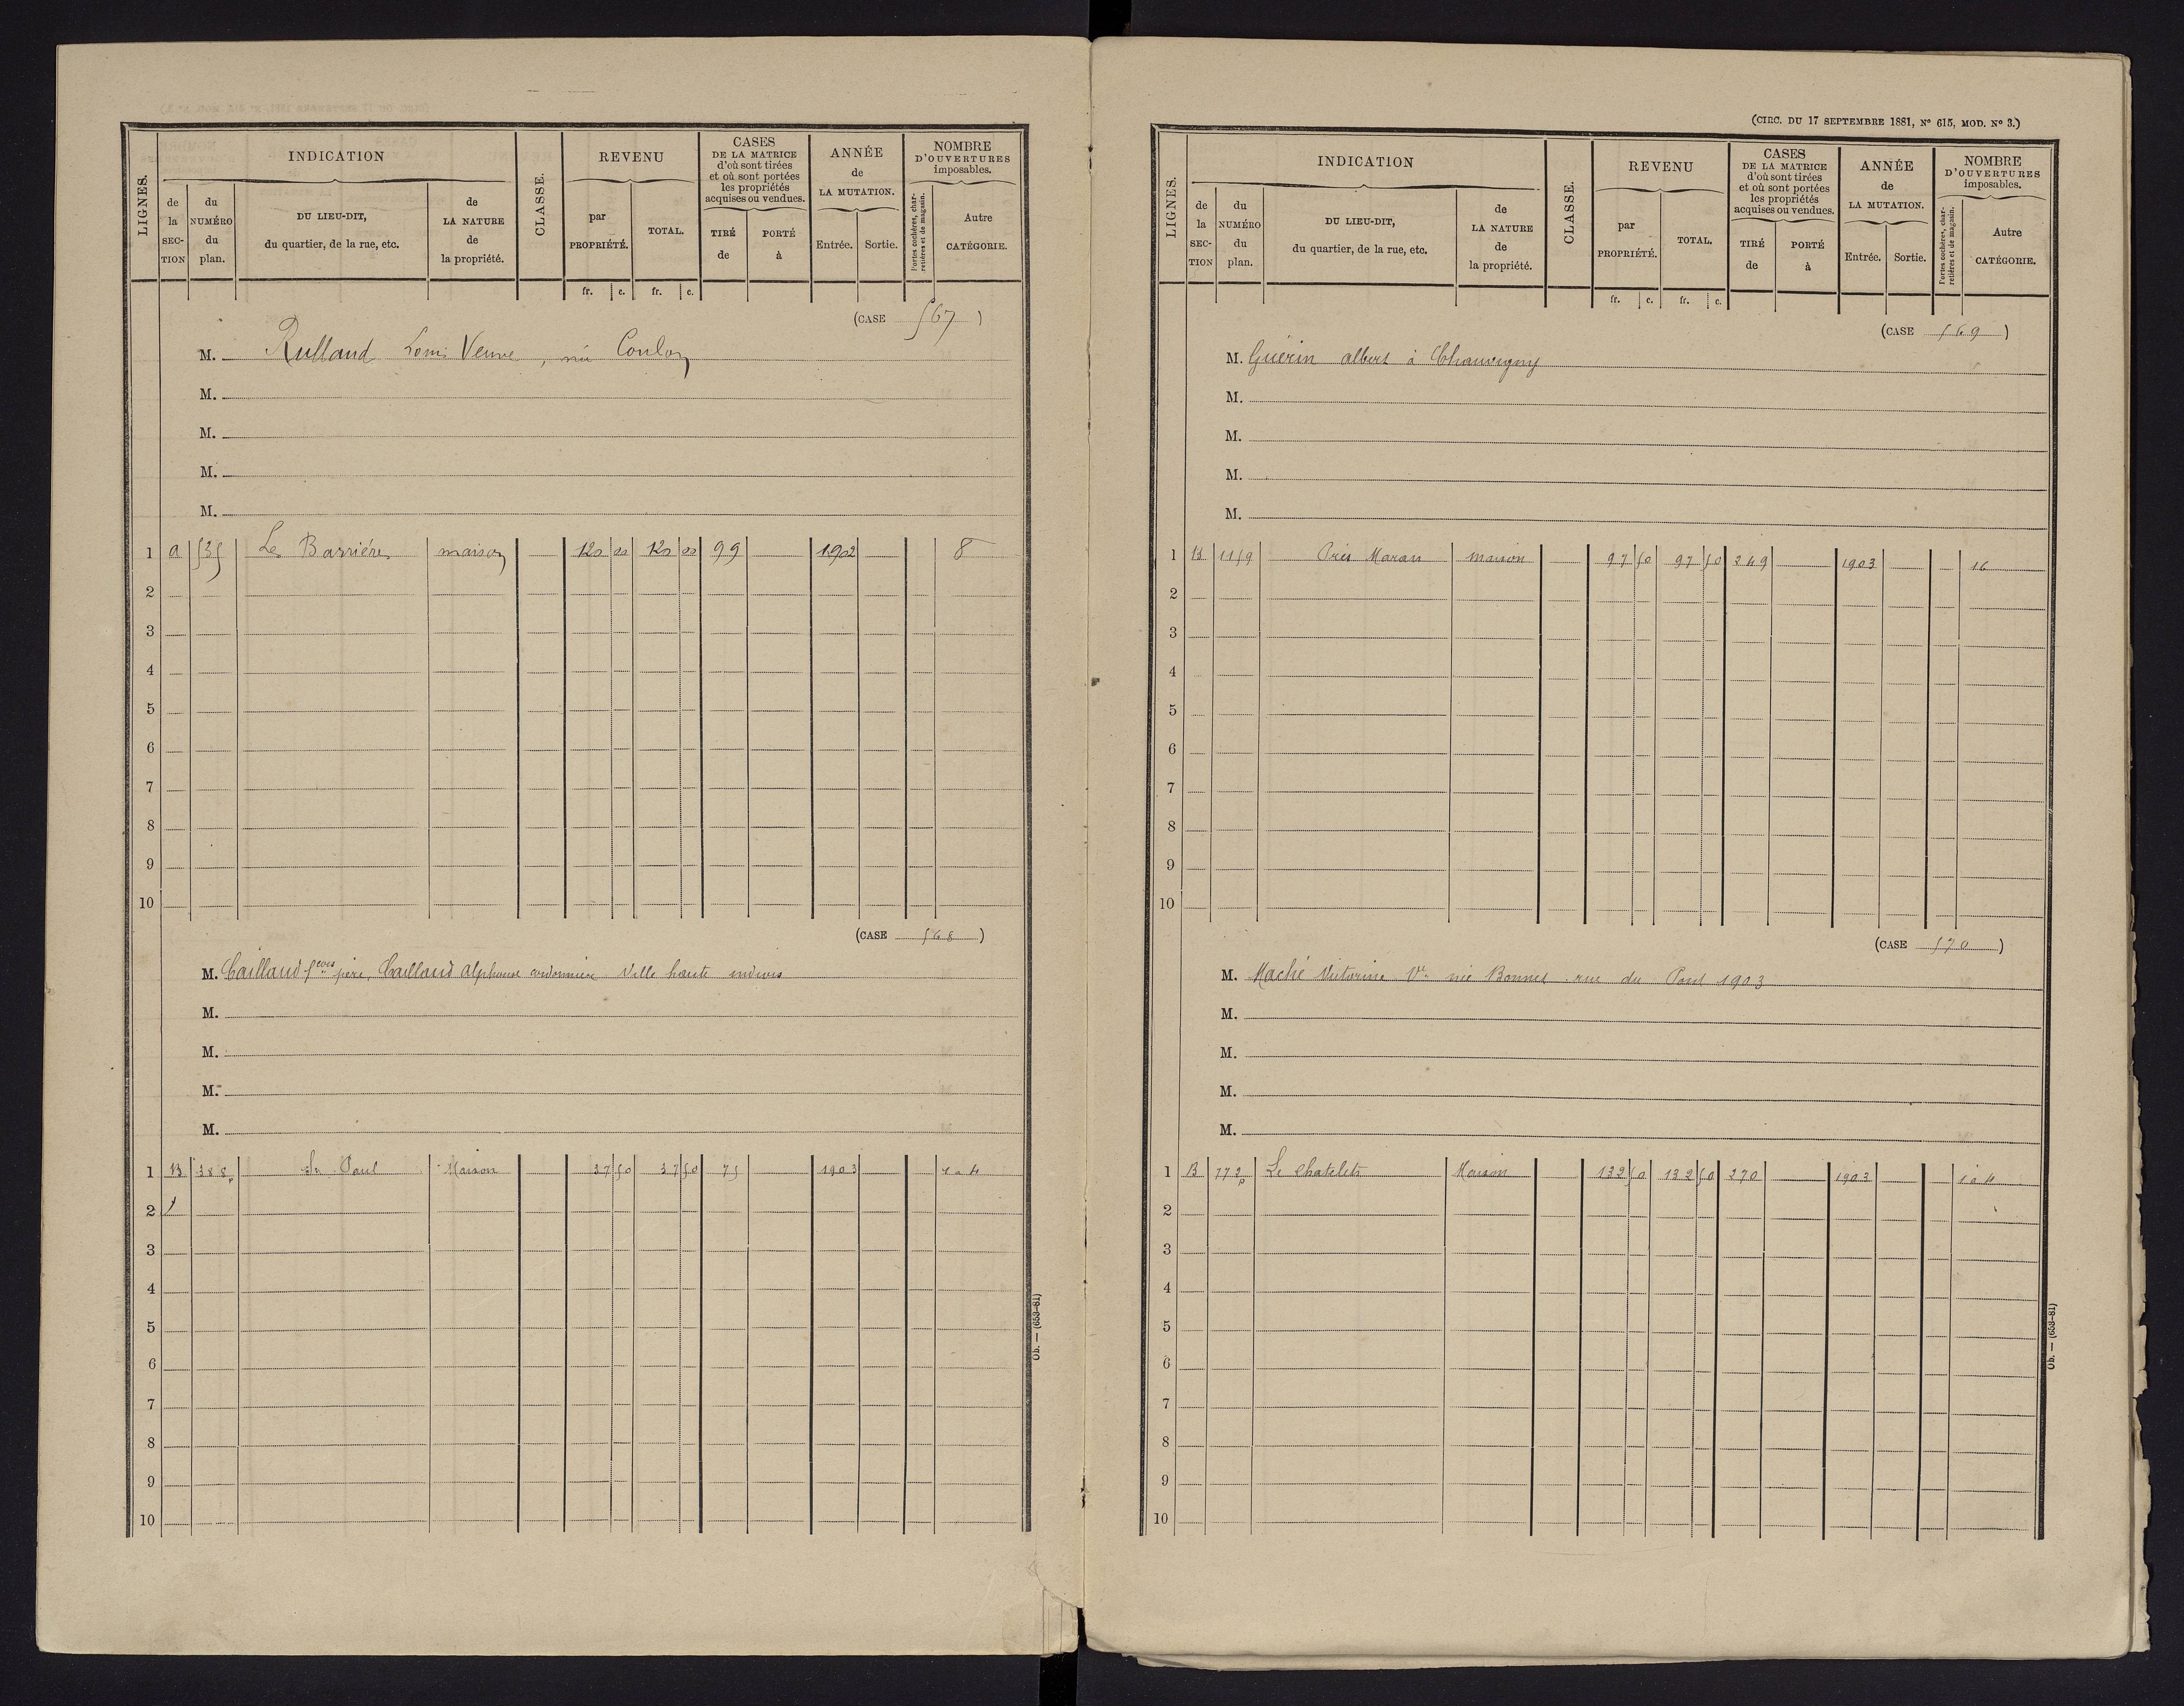 LIGNES.
INDICATION
de la SECTION
du NUMÉRO du plan.
DU LIEU-DIT, du quartier, de la rue, etc.
de LA NATURE de la propriété.
CLASSE.
REVENU
par PROPRIÉTÉ.
TOTAL.
fr. c. fr. c.
CASES DE LA MATRICE d'où sont tirées et où sont portées les propriétés acquises ou vendues.
TIRÉ de
PORTÉ à
ANNÉE de LA MUTATION.
Entrée. Sortie.
NOMBRE D'OUVERTURES imposables.
Portes cochères, charretières et de magasin.
Autre CATÉGORIE.
(CASE 567)
M. Rulland Louis Veuve, née Coulon
M.
M.
M.
M.
1 a 535 Les Barrières maison 120 00 120 00 99 1902 8
2
3
4
5
6
7
8
9
10
(CASE 568)
M. Caillaud fcois père, Caillaud Alphonse cordonnier Ville haute indivis
M.
M.
M.
M.
1 B 388p Maison 37 50 37 50 75 1903
2
3
4
5
6
7
8
9
10
Ob. — (653-81)
(CIRC. DU 17 SEPTEMBRE 1881, No 615, MOD. No 3.)
LIGNES.
INDICATION
de la SECTION
du NUMÉRO du plan.
DU LIEU-DIT, du quartier, de la rue, etc.
de LA NATURE de la propriété.
CLASSE.
REVENU
par PROPRIÉTÉ.
TOTAL.
fr. c. fr. c.
CASES DE LA MATRICE d'où sont tirées et où sont portées les propriétés acquises ou vendues.
TIRÉ de
PORTÉ à
ANNÉE de LA MUTATION.
Entrée. Sortie.
NOMBRE D'OUVERTURES imposables.
Portes cochères, charretières et de magasin.
Autre CATÉGORIE.
(CASE 569)
M. Guérin albert à Chauvigny
M.
M.
M.
M.
1 B 1159 maison 97 50 97 50 249 1903 16
2
3
4
5
6
7
8
9
10
(CASE 570)
M. Maché Victorine Ve née Bonnet rue du 1903
M.
M.
M.
M.
1 B 772p Le chatelet Maison 132 50 132 50 270 1903
2
3
4
5
6
7
8
9
10
Ob. — (653-81)